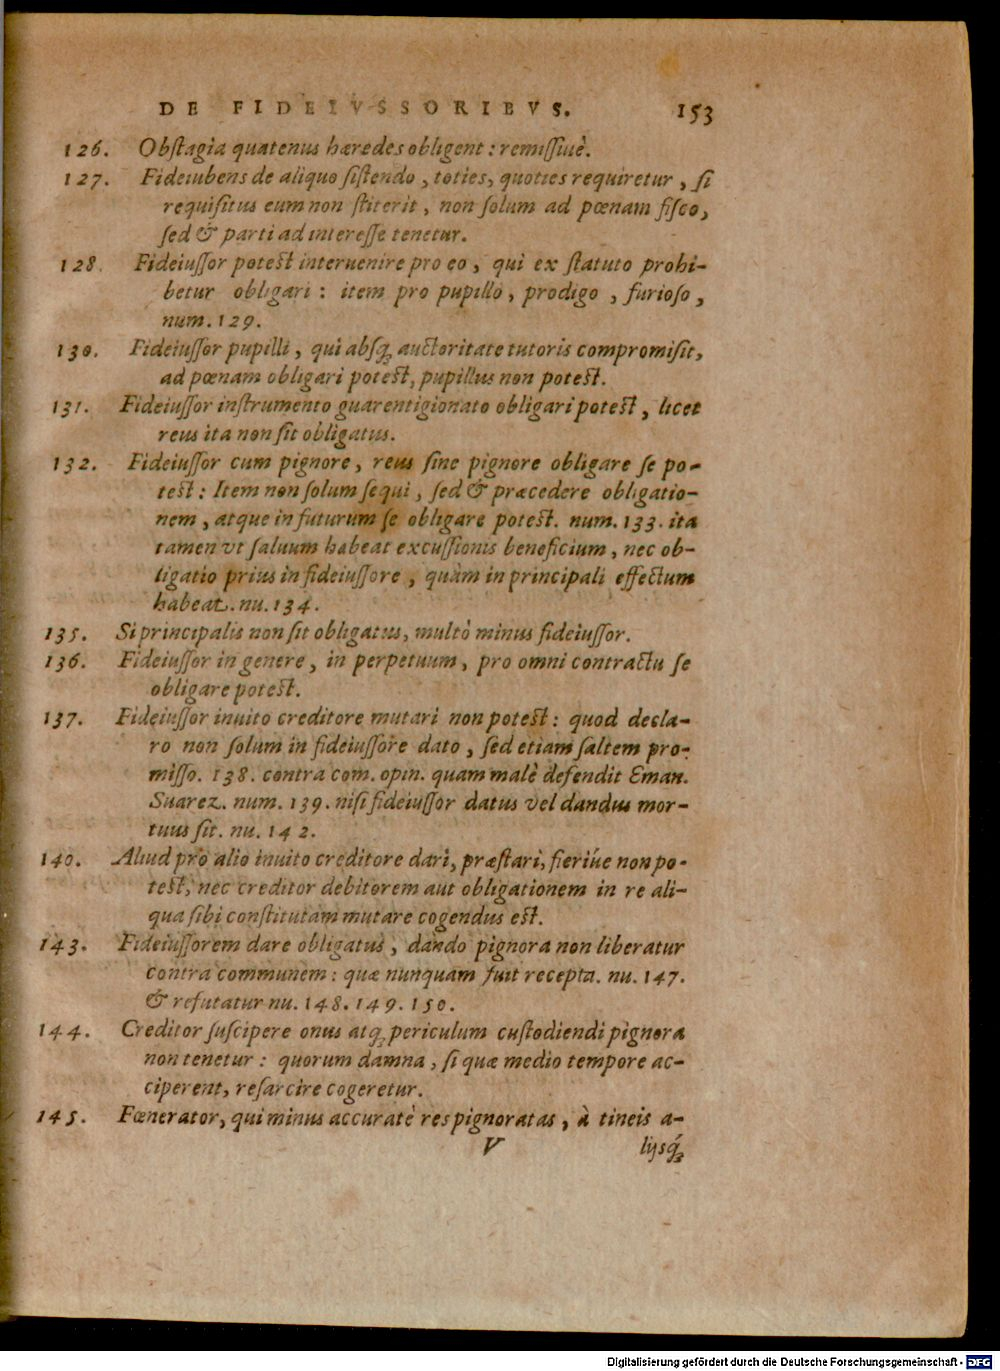 DE FIDEIVSSORIBVS. 153
126. Obſtagia quatenus hæredes obligent: remiſſiuè.
127. Fideiubens de aliquo ſiſtendo, toties, quoties requiretur, ſi
requiſitus eum non ſtiterit, non ſolum ad pœnam fiſco,
ſed & parti ad intereſſe tenetur.
128. Fideiuſſor poteſt interuenire pro eo, qui ex ſtatuto prohi-
betur obligari: item pro pupillo, prodigo, furioſo,
num. 129.
130. Fideiuſſor pupilli, qui abſq́; auctoritate tutoris compromiſit,
ad pœnam obligari poteſt, pupillus non poteſt.
131. Fideiuſſor inſtrumento guarentigionato obligari poteſt, licet
reus ita non ſit obligatus.
132. Fideiuſſor cum pignore, reus ſine pignore obligare ſe po-
teſt: Item non ſolum ſequi, ſed & præcedere obligatio-
nem, atque in futurum ſe obligare poteſt. num. 133. ita
tamen vt ſaluum habeat excuſſionis beneficium, nec ob-
ligatio prius in fideiuſſore, quàm in principali effectum
habeat. nu. 134.
135. Si principalis non ſit obligatus, multò minus fideiuſſor.
136. Fideiuſſor in genere, in perpetuum, pro omni contractu ſe
obligare poteſt.
137. Fideiuſſor inuito creditore mutari non poteſt: quod decla-
ro non ſolum in fideiuſſore dato, ſed etiam ſaltem pro-
miſſo. 138. contra com. opin. quam malè defendit Eman.
Suarez. num. 139. niſi fideiuſſor datus vel dandus mor-
tuus ſit. nu. 142.
140. Aliud pro alio inuito creditore dari, præſtari, fieriúe non po-
teſt, nec creditor debitorem aut obligationem in re ali-
qua ſibi conſtitutam mutare cogendus eſt.
143. Fideiuſſorem dare obligatus, dando pignora non liberatur
contra communem: quæ nunquam fuit recepta. nu. 147.
& refutatur nu. 148. 149. 150.
144. Creditor ſuſcipere onus atq́; periculum cuſtodiendi pignora
non tenetur: quorum damna, ſi quæ medio tempore ac-
ciperent, reſarcire cogeretur.
145. Fœnerator, qui minus accuratè res pignoratas, à tineis a-
V lijsq́;
Digitalisierung gefördert durch die Deutsche Forschungsgemeinschaft - DFG